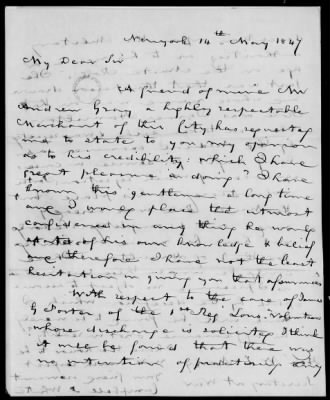 New york 14th May 1847
My Dear Sir
A friend of mine Mr
Andrew Gray a highly respectable
Merchant of this City has requested
me to state to you my opinion
as to his credibility: which I have
great pleasure in doing. I have
known this gentleman a long time
and I would place the utmost
confidence in any thing he would
state of his own knowledge & belief
and therefore I have not the least
hesitation in giving you that assurance
With respect to the case of James
G Porter, of the 1st Reg Louis. Volunteers
whose discharge is solicited, I think
it will be found that there was
no intention of practising any